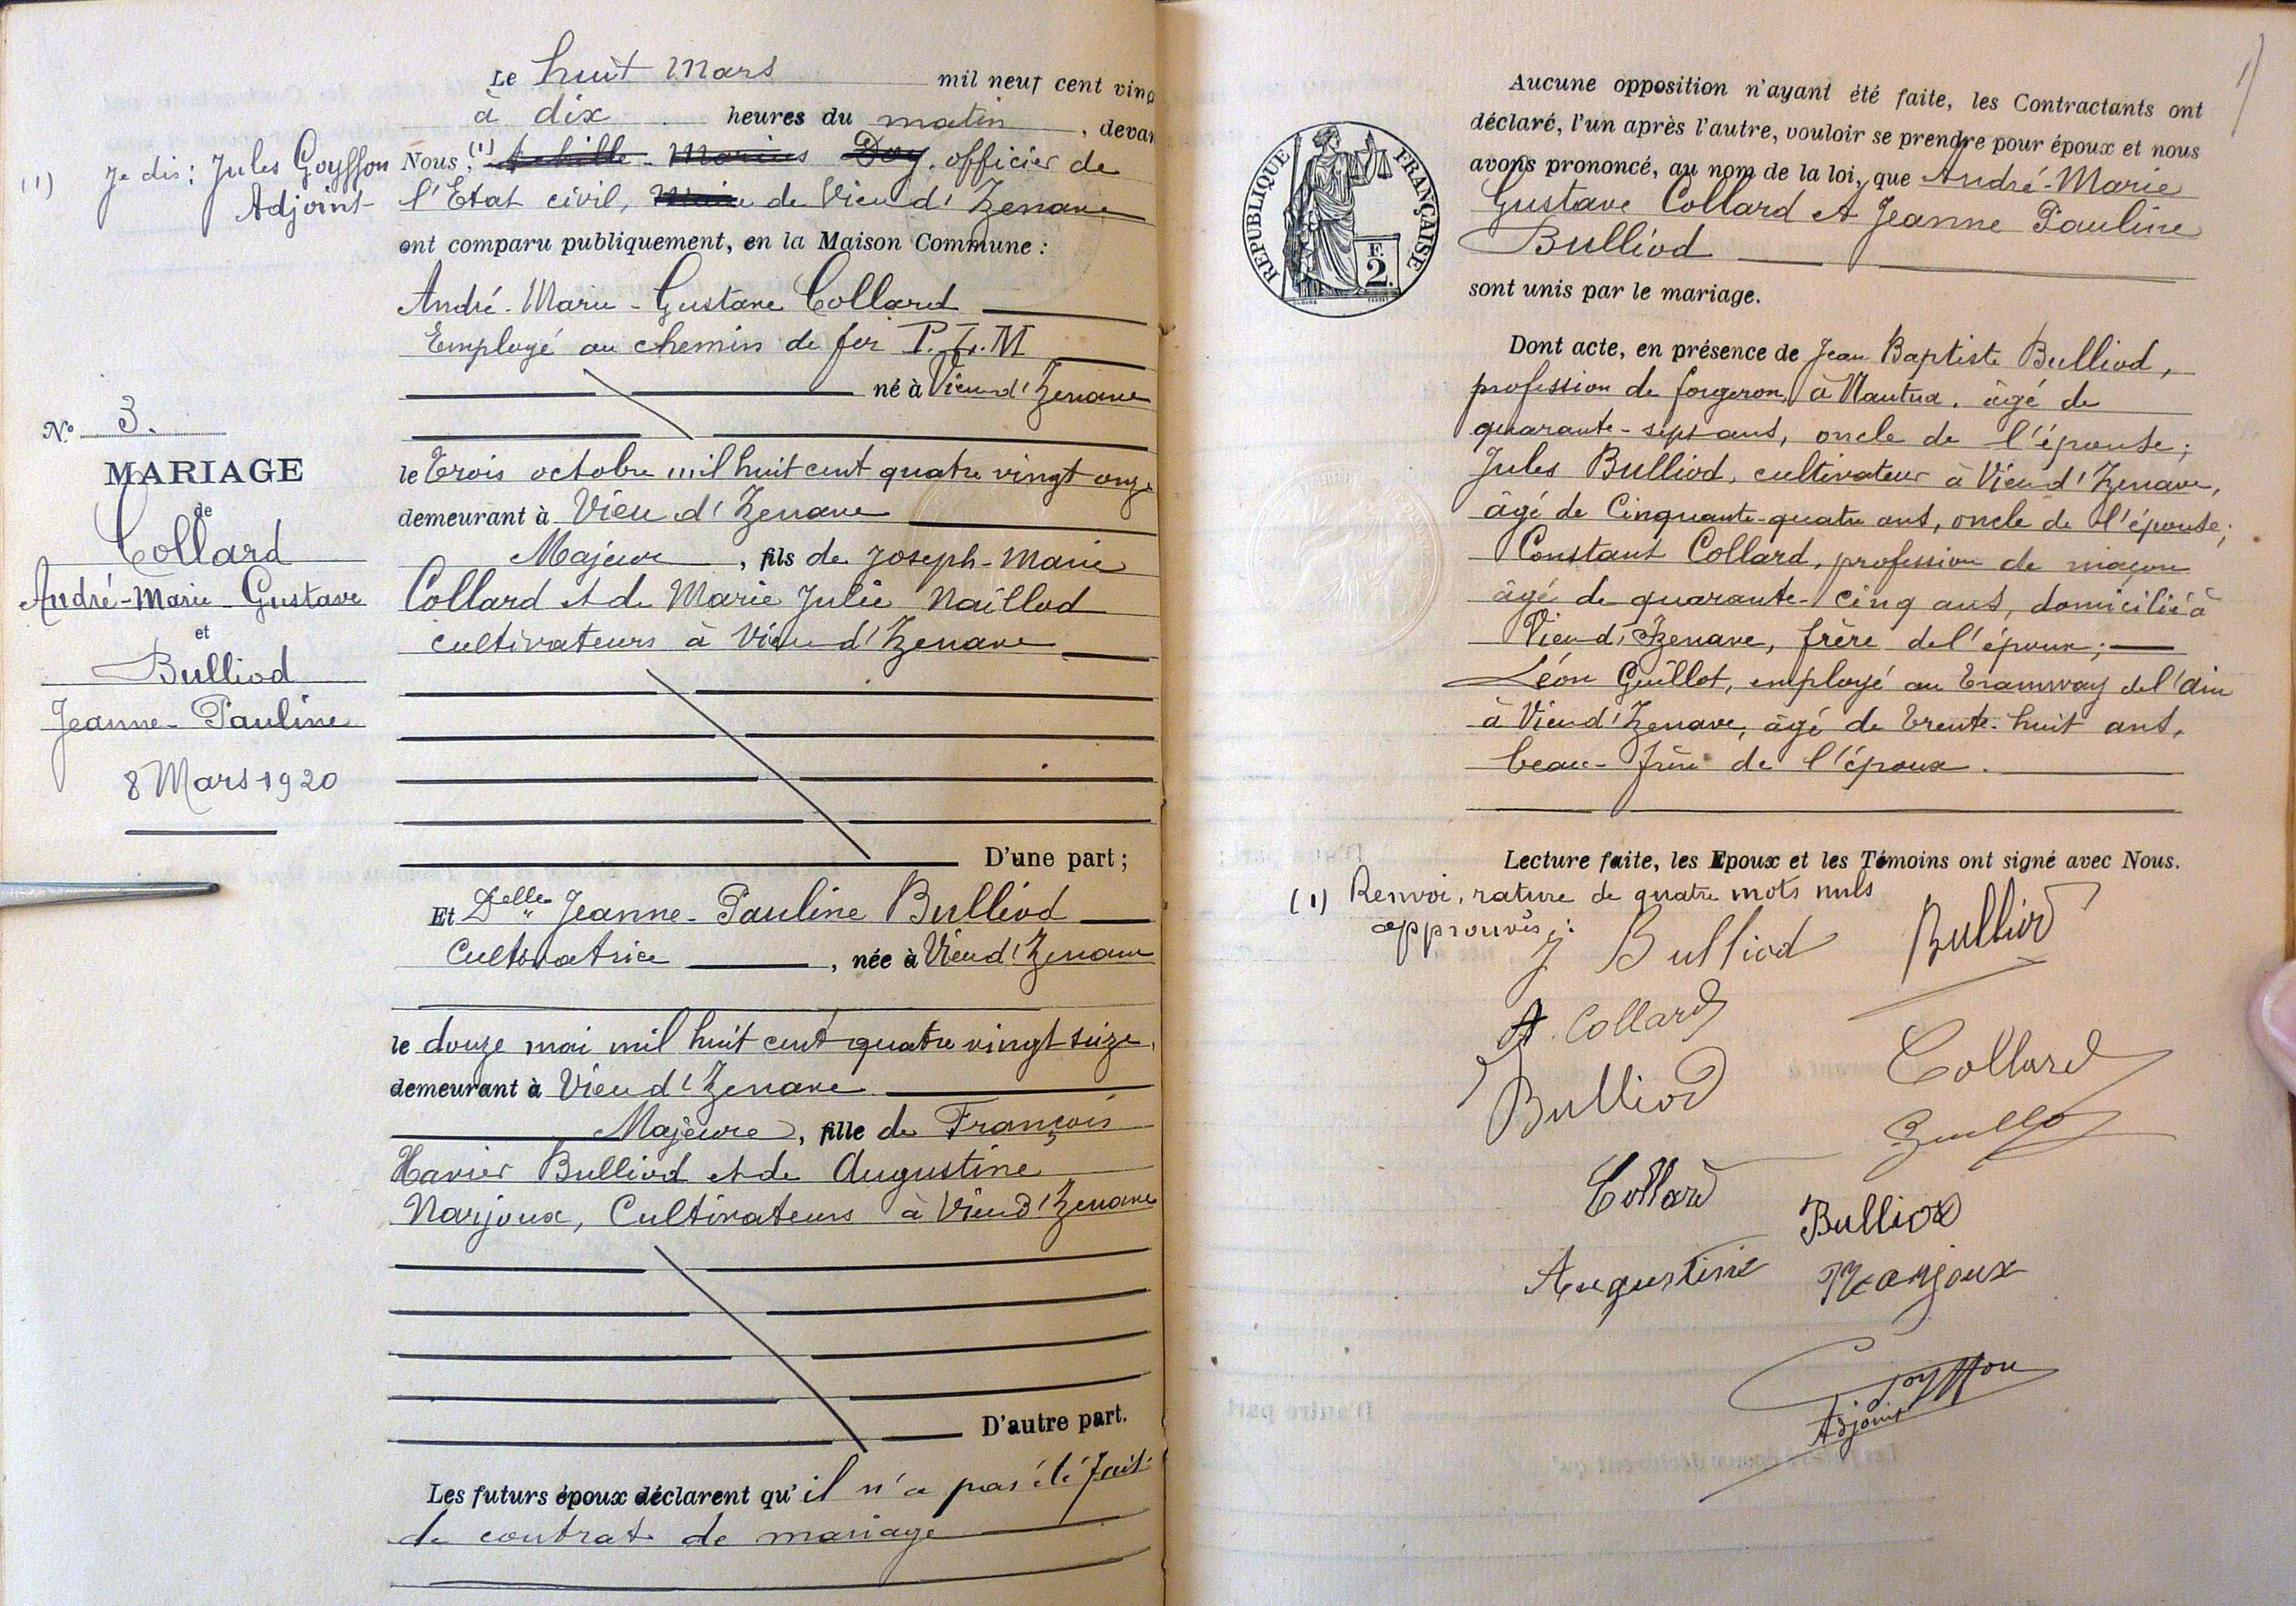 Le huit Mars mil neuf cent ving
à dix heures du matin, devan
Nous, (1) Achille-Marius Doy, officier de
l'Etat civil, Maire de Vieu d'Izenave
ont comparu publiquement, en la Maison Commune :
André-Marie-Gustave Collard
Employé au chemin de fer P.L.M
né à Vieu d'Izenave
le trois octobre mil huit cent quatre vingt onze
demeurant à Vieu d'Izenave
Majeur, fils de Joseph-Marie
Collard et de Marie Julie Naillod
cultivateurs à Vieu d'Izenave
D'une part ;
Et Delle Jeanne-Pauline Bulliod
Cultivatrice, née à Vieu d'Izenave
le douze mai mil huit cent quatre vingt seize,
demeurant à Vieu d'Izenave
Majeure, fille de François
Xavier Bulliod et de Augustine
Narjoux, Cultivateurs à Vieu d'Izenave
D'autre part.
Les futurs époux déclarent qu'il n'a pas été fait
de contrat de mariage
(1) Je dis : Jules Goyffon
Adjoint
N° 3.
MARIAGE
de
Collard
André-Marie-Gustave
et
Bulliod
Jeanne-Pauline
8 Mars 1920
REPUBLIQUE FRANÇAISE
F.
2.
Aucune opposition n'ayant été faite, les Contractants ont
déclaré, l'un après l'autre, vouloir se prendre pour époux et nous
avons prononcé, au nom de la loi, que André-Marie
Gustave Collard et Jeanne Pauline
Bulliod
sont unis par le mariage.
Dont acte, en présence de Jean Baptiste Bulliod,
profession de forgeron, à Nantua, âgé de
quarante-sept ans, oncle de l'épouse ;
Jules Bulliod, cultivateur à Vieu d'Izenave,
âgé de Cinquante-quatre ans, oncle de l'épouse ;
Constant Collard, profession de maçon
âgé de quarante-cinq ans, domicilié à
Vieu d'Izenave, frère de l'époux ;
Léon Guillot, employé au tramway de l'Ain
à Vieu d'Izenave, âgé de trente-huit ans,
beau-frère de l'époux.
Lecture faite, les Epoux et les Témoins ont signé avec Nous.
(1) Renvoi, rature de quatre mots nuls
approuvés :
J Bulliod Bulliod
A. Collard
Bulliod Collard
Guillot
Collard
Bulliod
Augustine Narjoux
Goyffon
Adjoint